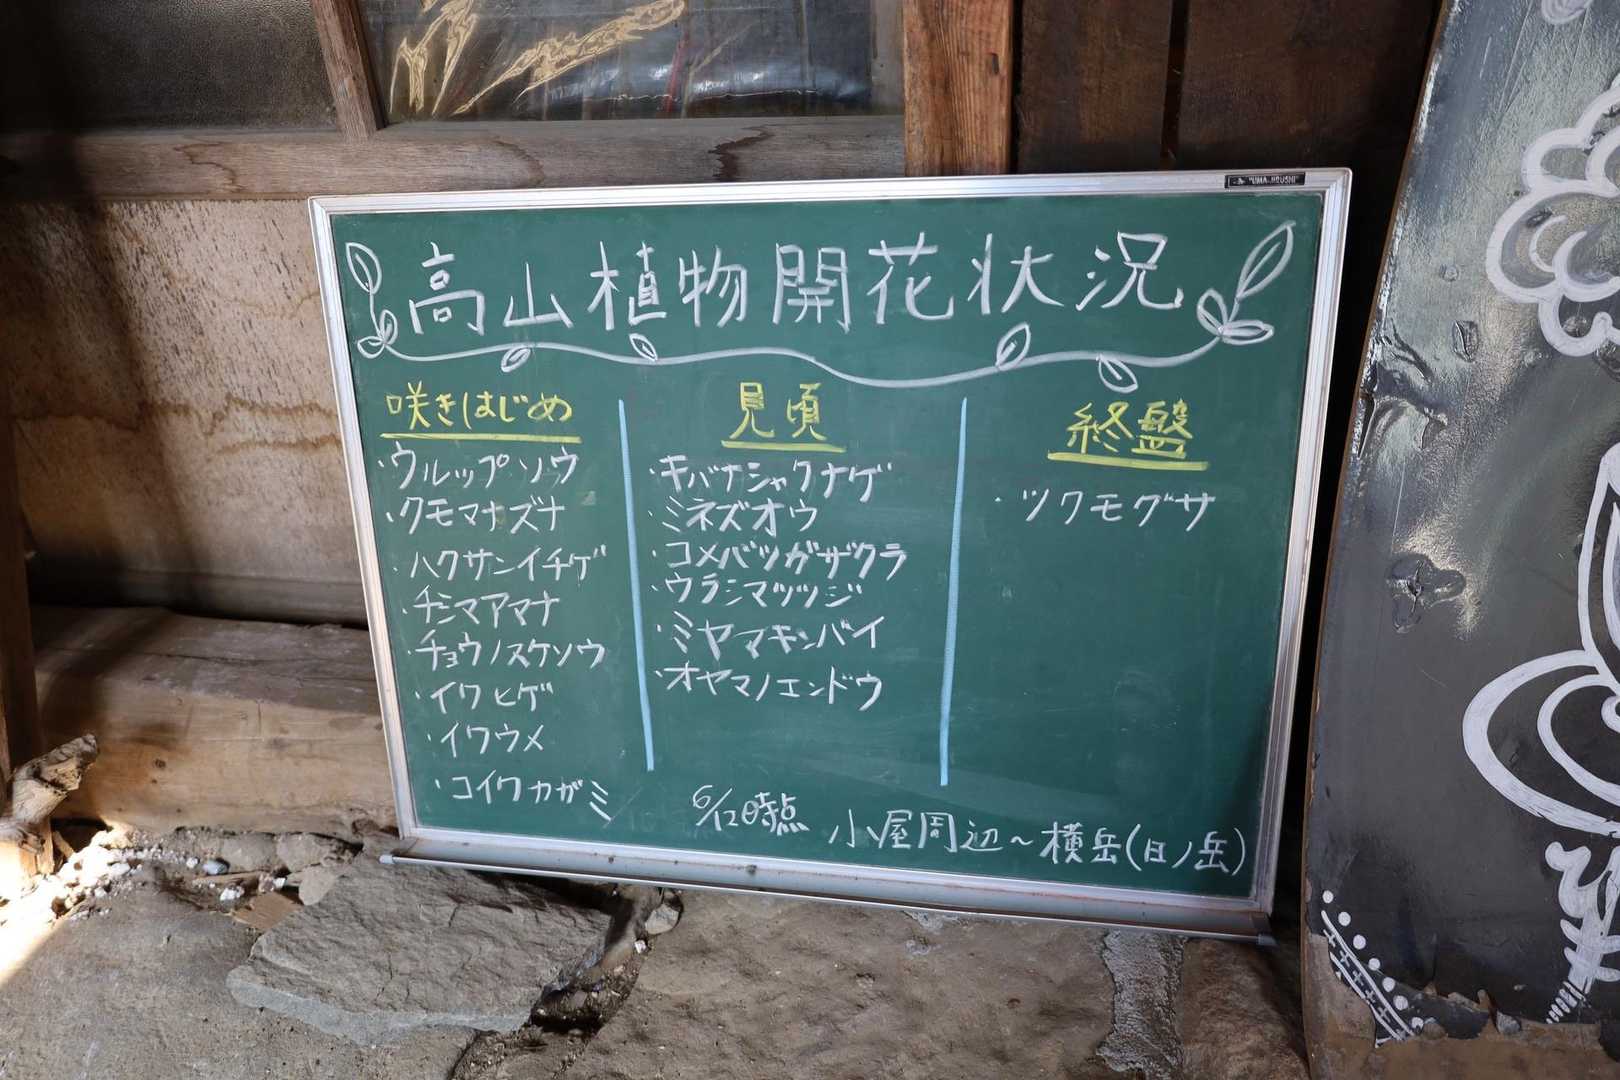 "UMA JIRUSHI"
高山植物開花状況
咲きはじめ
・ウルップソウ
・クモマナズナ
・ハクサンイチゲ
・チシマアマナ
・チョウノスケソウ
・イワヒゲ
・イワウメ
・コイワカガミ
見頃
・キバナシャクナゲ
・ミネズオウ
・コメバツガザクラ
・ウラシマツツジ
・ミヤマキンバイ
・オヤマノエンドウ
終盤
・ツクモグサ
6/12時点 小屋周辺~横岳(日ノ岳)